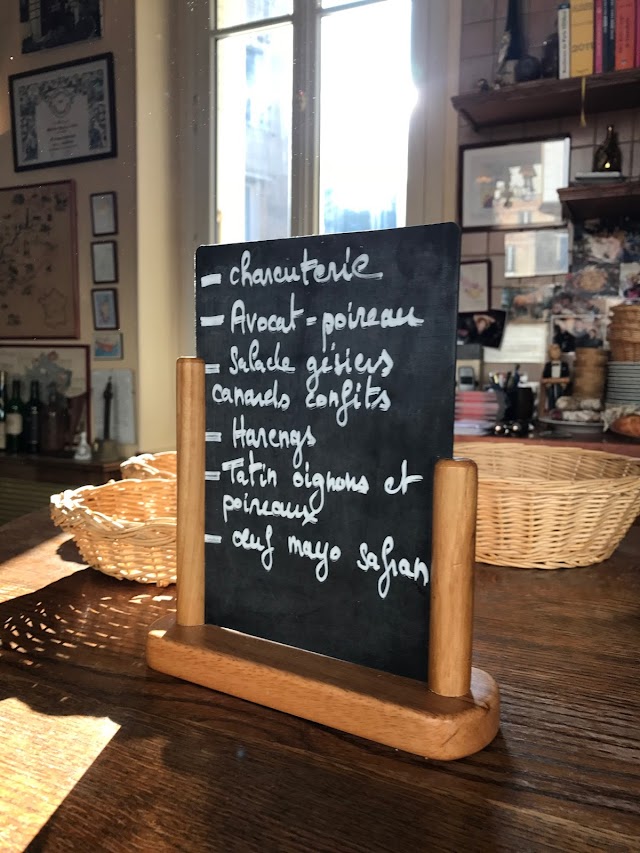 - charcuterie
- Avocat-poireau
- Salade gésiers
canards confits
- Harengs
- Tatin oignons et
poireaux
- œuf mayo safran